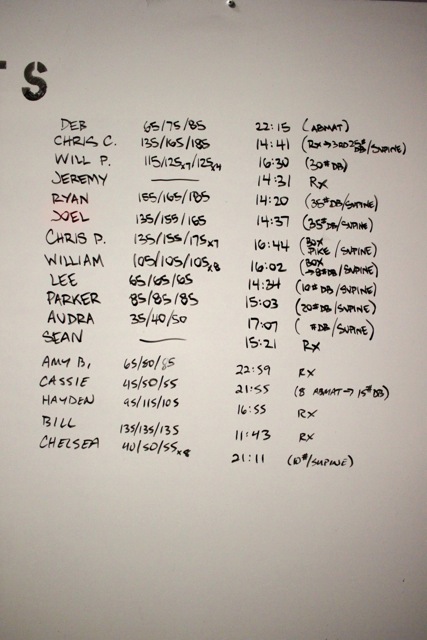 TS
DEB 65/75/85 22:15 (ABMAT)
CHRIS C. 135/165/185 14:41 (RX→3RD 25# DB/SUPINE)
WILL P. 115/125x7/125x4 16:30 (30# DB)
JEREMY — 14:31 RX
RYAN 155/165/185 14:20 (35# DB/SUPINE)
JOEL 135/155/165 14:37 (35# DB/SUPINE)
CHRIS P. 135/155/175x7 16:44 (BOX PIKE/SUPINE)
WILLIAM 105/105/105x8 16:02 (BOX →8# DB/SUPINE)
LEE 65/65/65 14:34 (10# DB/SUPINE)
PARKER 85/85/85 15:03 (20# DB/SUPINE)
AUDRA 35/40/50 17:07 ( #DB/SUPINE)
SEAN — 15:21 RX
AMY B, 65/80/85 22:59 RX
CASSIE 45/50/55 21:55 (8 ABMAT→15# DB)
HAYDEN 95/115/105 16:55 RX
BILL 135/135/135 11:43 RX
CHELSEA 40/50/55x8 21:11 (10#/SUPINE)